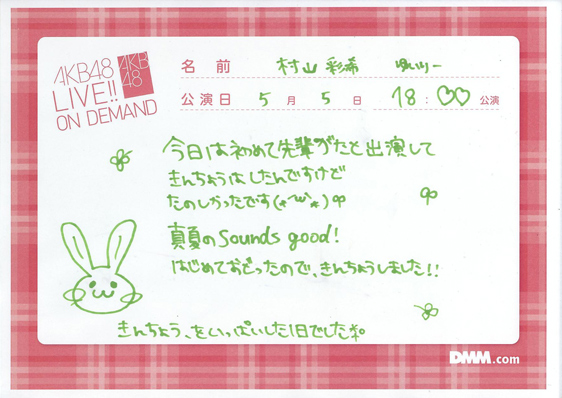 AKB48
LIVE!!
ON DEMAND
AKB
48
名前 村山 彩希 ゆいりー
公演日 5月5日 18:♡♡公演
今日は初めて先輩がたと出演して
きんちょうはしたんですけど
たのしかったです(*´w`*)
真夏のSounds good!
はじめておどったので、きんちょうしました!!
きんちょう、をいっぱいした1日でした。
DMM.com